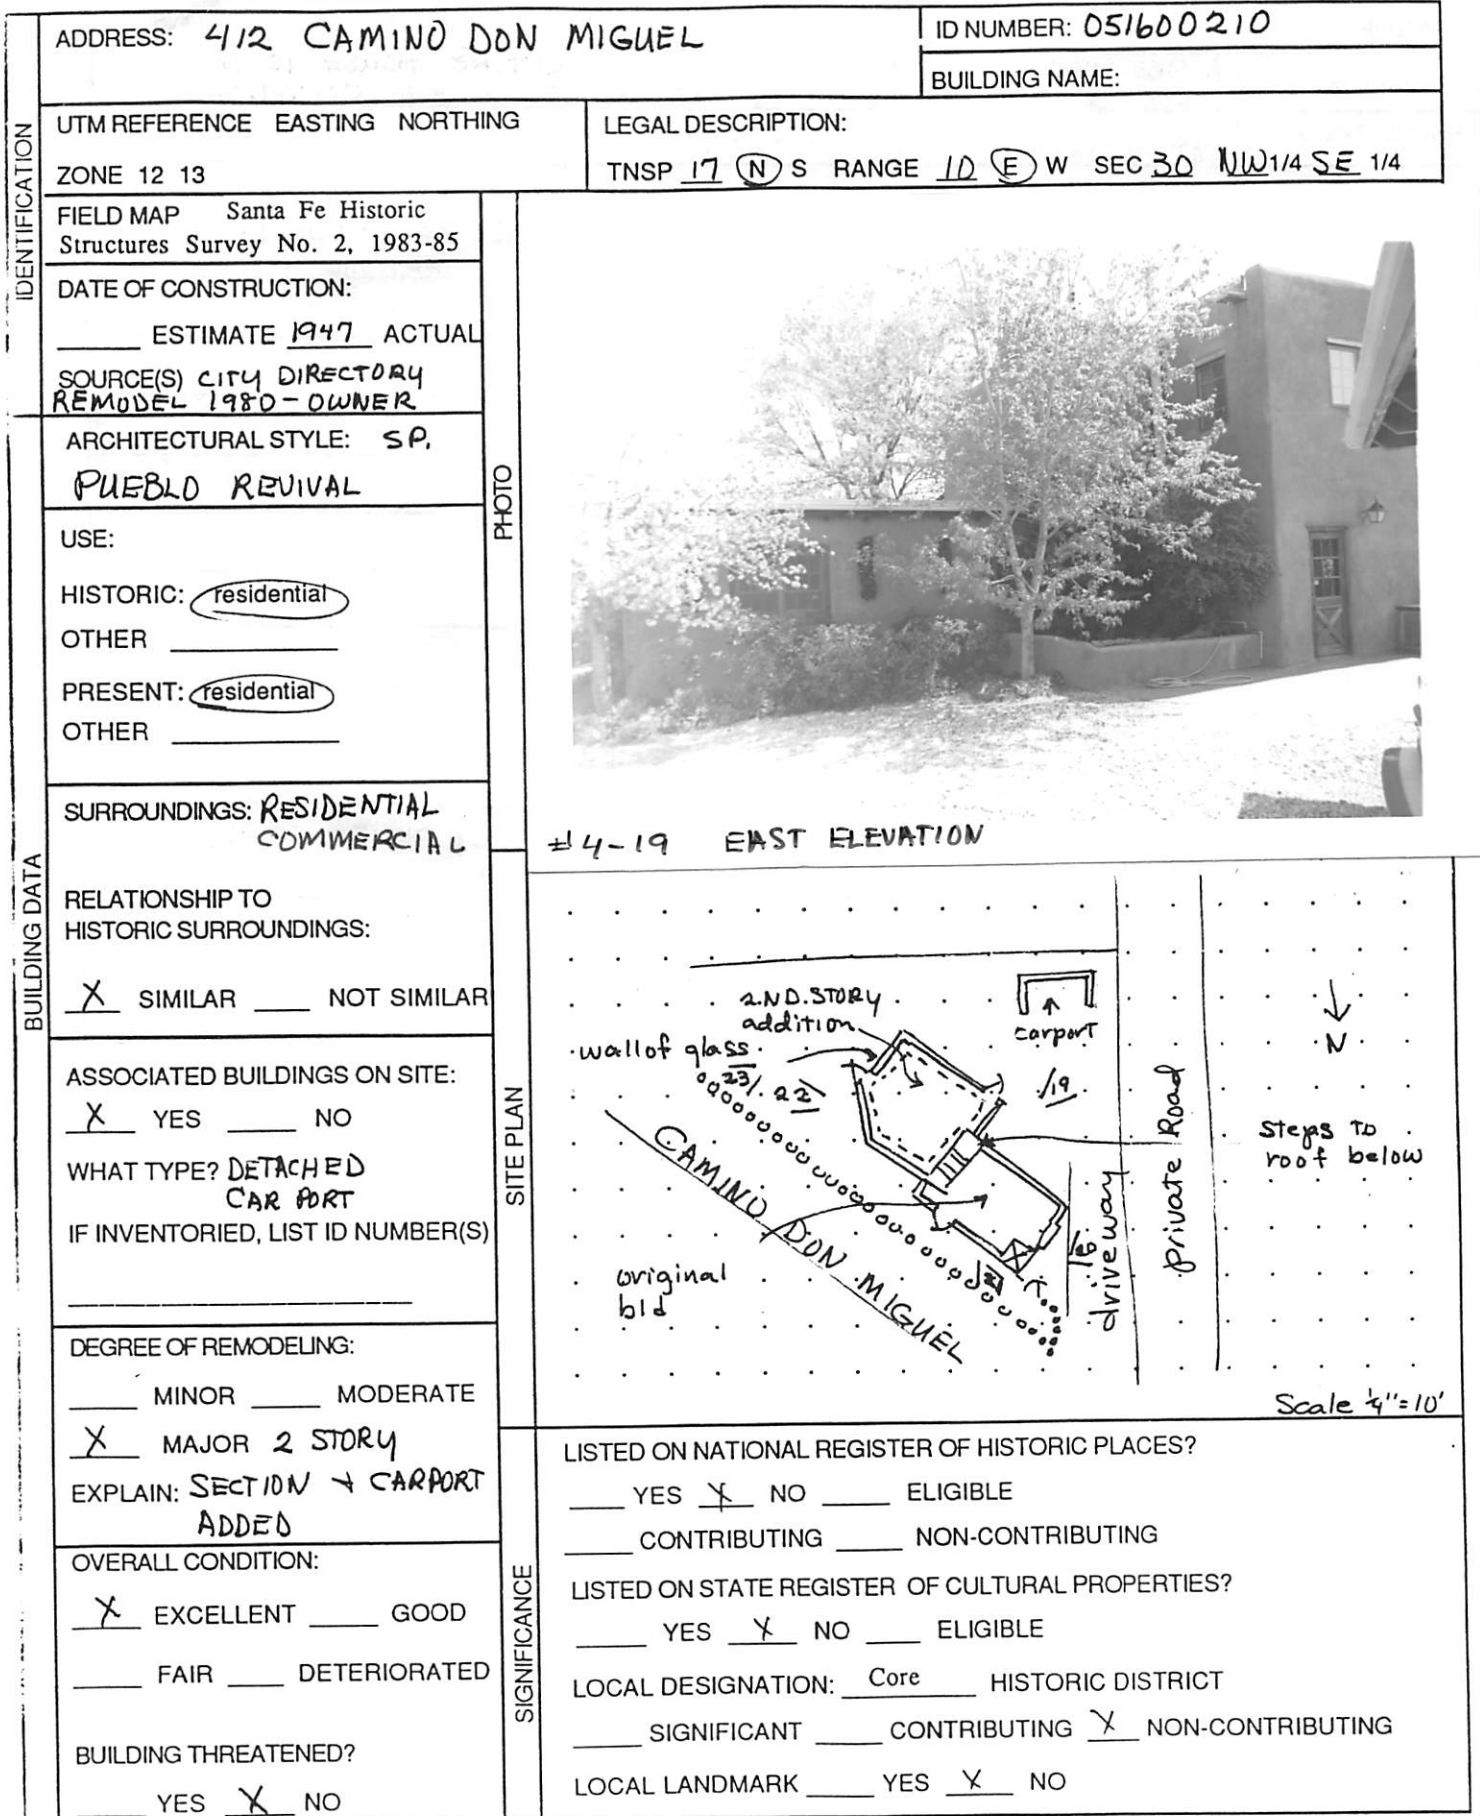 ADDRESS: 412 CAMINO DON MIGUEL
ID NUMBER: 051600210
BUILDING NAME:
IDENTIFICATION
UTM REFERENCE EASTING NORTHING
ZONE 12 13
LEGAL DESCRIPTION:
TNSP 17 N S RANGE 10 E W SEC 30 NW 1/4 SE 1/4
FIELD MAP Santa Fe Historic
Structures Survey No. 2, 1983-85
DATE OF CONSTRUCTION:
____ ESTIMATE 1947 ACTUAL
SOURCE(S) CITY DIRECTORY
REMODEL 1980 - OWNER
BUILDING DATA
ARCHITECTURAL STYLE: SP.
PUEBLO REVIVAL
USE:
HISTORIC: residential
OTHER ____
PRESENT: residential
OTHER ____
SURROUNDINGS: RESIDENTIAL
COMMERCIAL
RELATIONSHIP TO
HISTORIC SURROUNDINGS:
X SIMILAR ____ NOT SIMILAR
ASSOCIATED BUILDINGS ON SITE:
X YES ____ NO
WHAT TYPE? DETACHED
CAR PORT
IF INVENTORIED, LIST ID NUMBER(S)
____
DEGREE OF REMODELING:
____ MINOR ____ MODERATE
X MAJOR 2 STORY
EXPLAIN: SECTION + CARPORT
ADDED
OVERALL CONDITION:
X EXCELLENT ____ GOOD
____ FAIR ____ DETERIORATED
BUILDING THREATENED?
____ YES X NO
PHOTO
#4-19 EAST ELEVATION
SITE PLAN
2.ND. STORY
addition
wall of glass
23 22
carport
19
N
CAMINO DON MIGUEL
original
bld
21
16
driveway
private Road
Steps to
roof below
Scale 1/4"=10'
SIGNIFICANCE
LISTED ON NATIONAL REGISTER OF HISTORIC PLACES?
____ YES X NO ____ ELIGIBLE
____ CONTRIBUTING ____ NON-CONTRIBUTING
LISTED ON STATE REGISTER OF CULTURAL PROPERTIES?
____ YES X NO ____ ELIGIBLE
LOCAL DESIGNATION: Core HISTORIC DISTRICT
____ SIGNIFICANT ____ CONTRIBUTING X NON-CONTRIBUTING
LOCAL LANDMARK ____ YES X NO